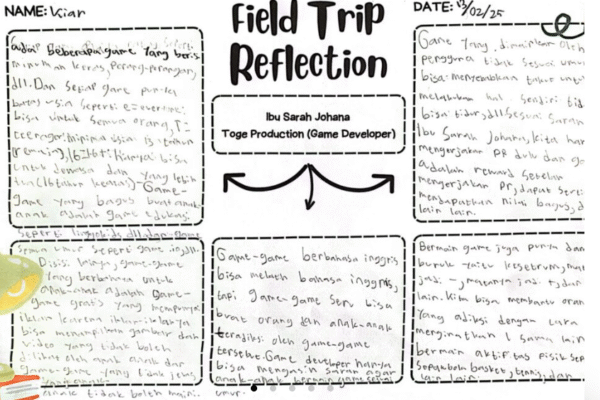 NAME: Kiar
Field Trip
Reflection
DATE: 13/02/25
Ibu Sarah Johana
Toge Production (Game Developer)
ada beberapa game yang beris
minuman keras, perang-perangan,
dll. Dan setiap game punya
batas usia seperti: E=everyone:
bisa untuk semua orang, T=
teenager:
remaja), 16-16+: hanya bisa
untuk dewasa dan yang lebih
tua (16 tahun keatas)-Game-
game yang bagus buat anak-
anak adalah game edukasi.
seperti dll dan Game
semua umur seperti game
Disisi lainya, game-game
yang berbahaya untuk
anak-anak adalah Game-
game gratis yang mempunyai
iklan karena iklan-iklak ya
bisa menampilkan gambar dan
video yang tidak boleh
dilihat oleh anak anak dan
game-game yang tidak jelas
anak tidak boleh main.
Game-game berbahasa inggris
bisa melatih bahasa inggris,
tapi game-game seru bisa
buat orang dan anak-anak
teradiksi oleh game-game
tersebut. Game developer hanya
bisa mengasih saran agar
anak-anak bermain game sesuai
umur.
Game yang dimainkan oleh
pengguna tidak sesuai umur
bisa menyebabkan takut untuk
melakukan hal sendiri tid
bisa tidur, dll. sesuai saran
Ibu Sarah Johana, kita har
mengerjakan PR dulu dan ga
adalah reward setelah
mengerjakan Pr, dapat serti
mendapatkan nilai bagus, d
lain lain.
Bermain game juga punya dam
buruk yaitu kesetrum, mu
jadi -, matanya jadi +, dan
lain. Kita bisa membantu oran
yang adiksi dengan cara
mengingatkan 1 sama lain
bermain aktifitas fisik sep
sepak bola basket, tennis, dan
lain lain.